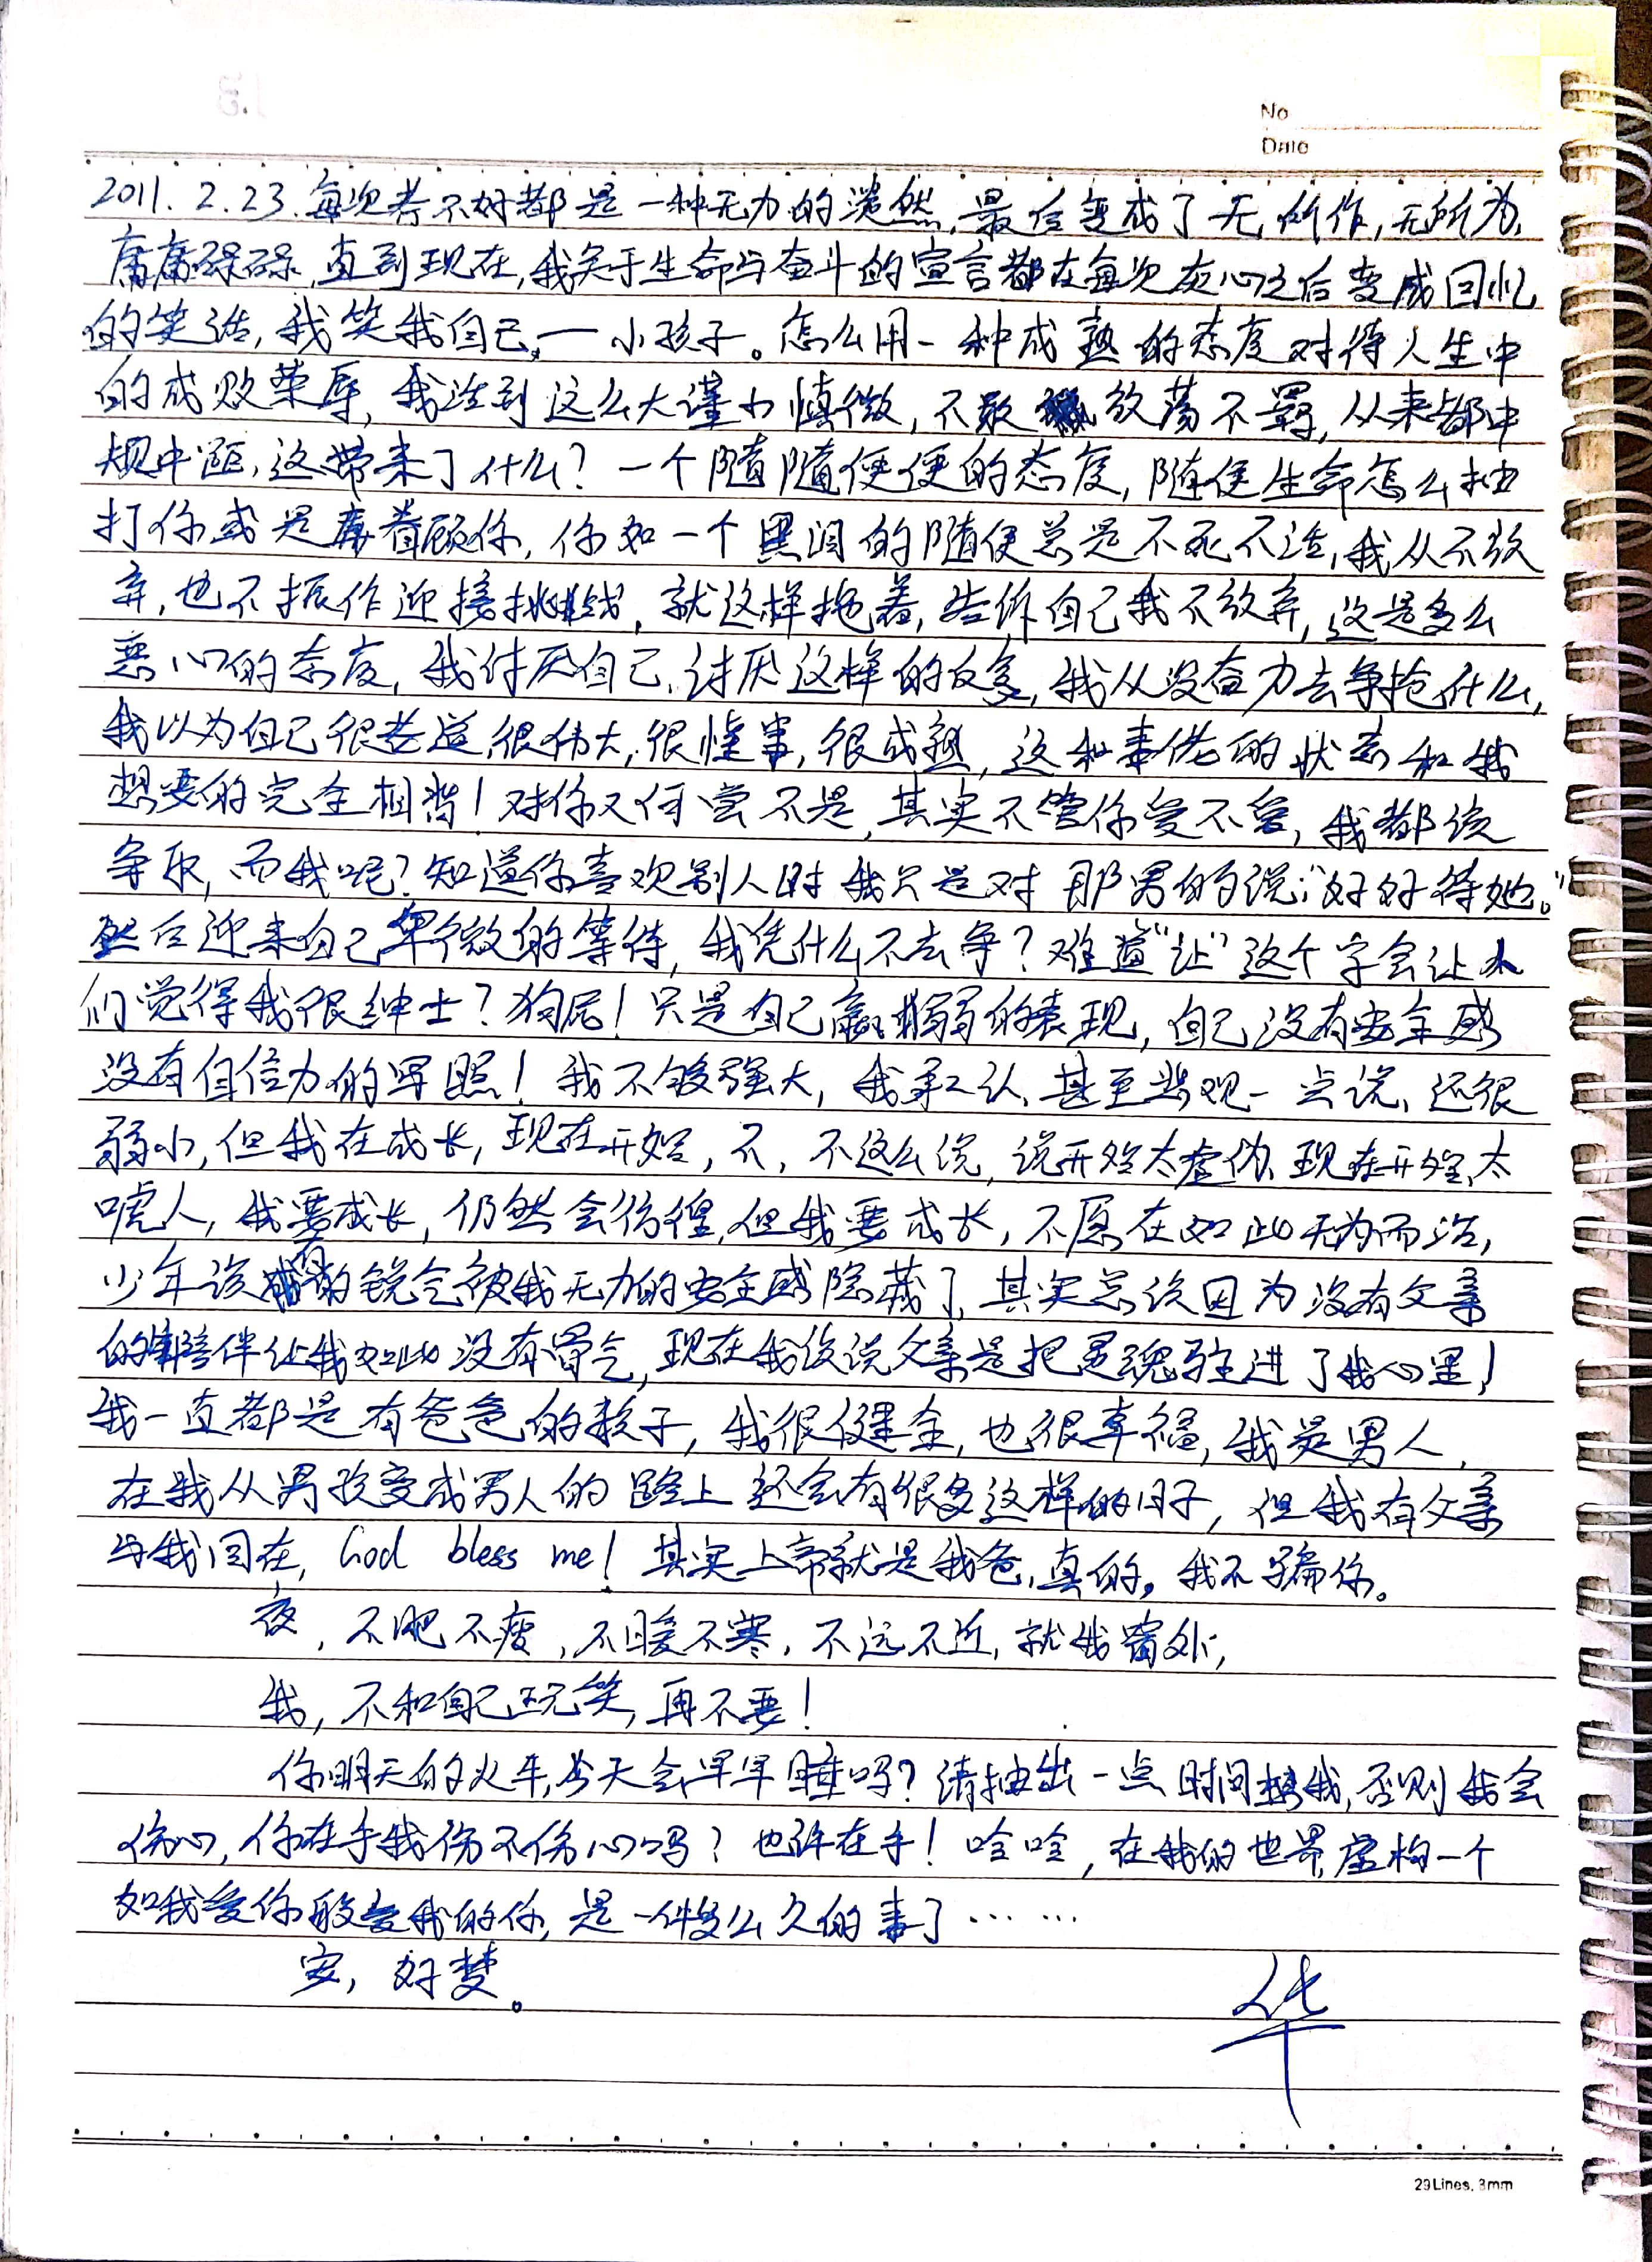 No
Date
2011.2.23.每次考不好都是一种无力的溃然,最后变成了无所作,无所为,
庸庸碌碌,直到现在,我关于生命与奋斗的宣言都在每次灰心之后变成回忆
的笑话,我笑我自己,一小孩子。怎么用一种成熟的态度对待人生中
的成败荣辱,我活到这么大谨小慎微,不敢放荡不羁,从来都中
规中距,这带来了什么?一个随随便便的态度,随便生命怎么抽
打你或是眷顾你,你如一个黑洞的随便总是不死不活,我从不放
弃,也不振作迎接挑战,就这样拖着,告诉自己我不放弃,这是多么
恶心的态度,我讨厌自己,讨厌这样的反复,我从没奋力去争抢什么,
我以为自己很老道,很伟大,很懂事,很成熟,这和事情的状态和我
想要的完全相背!对你又何尝不是,其实不管你爱不爱,我都该
争取,而我呢?知道你喜欢别人时我只是对那男的说:“好好待她。”
然后迎来自己卑微的等待,我凭什么不去争?难道“让”这个字会让人
们觉得我很绅士?狗屁!只是自己羸弱的表现,自己没有安全感
没有自信力的写照!我不够强大,我承认,甚至悲观一点说,还很
弱小,但我在成长,现在开始,不,不这么说,说开始太虚伪,现在开始,太
唬人,我要成长,仍然会彷徨,但我要成长,不愿在如此无为而治,
少年该有的锐气被我无力的安全感隐藏了,其实总说因为没有父亲
的陪伴让我如此没有骨气,现在我该说父亲是把灵魂驻进了我心里!
我一直都是有爸爸的孩子,我很健全,也很幸福,我是男人,
在我从男孩变成男人的路上还会有很多这样的日子,但我有父亲
与我同在,God bless me!其实上帝就是我爸,真的,我不骗你。
夜,不肥不瘦,不暖不寒,不远不近,就我窗外;
我,不和自己玩笑,再不要!
你明天的火车,今天会早早睡吗?请抽出一点时间想我,否则我会
伤心,你在乎我伤不伤心吗?也许在乎!哈哈,在我的世界虚构一个
如我爱你般爱我的你,是一件多么久的事了……
安,好梦。
华
29Lines, 8mm